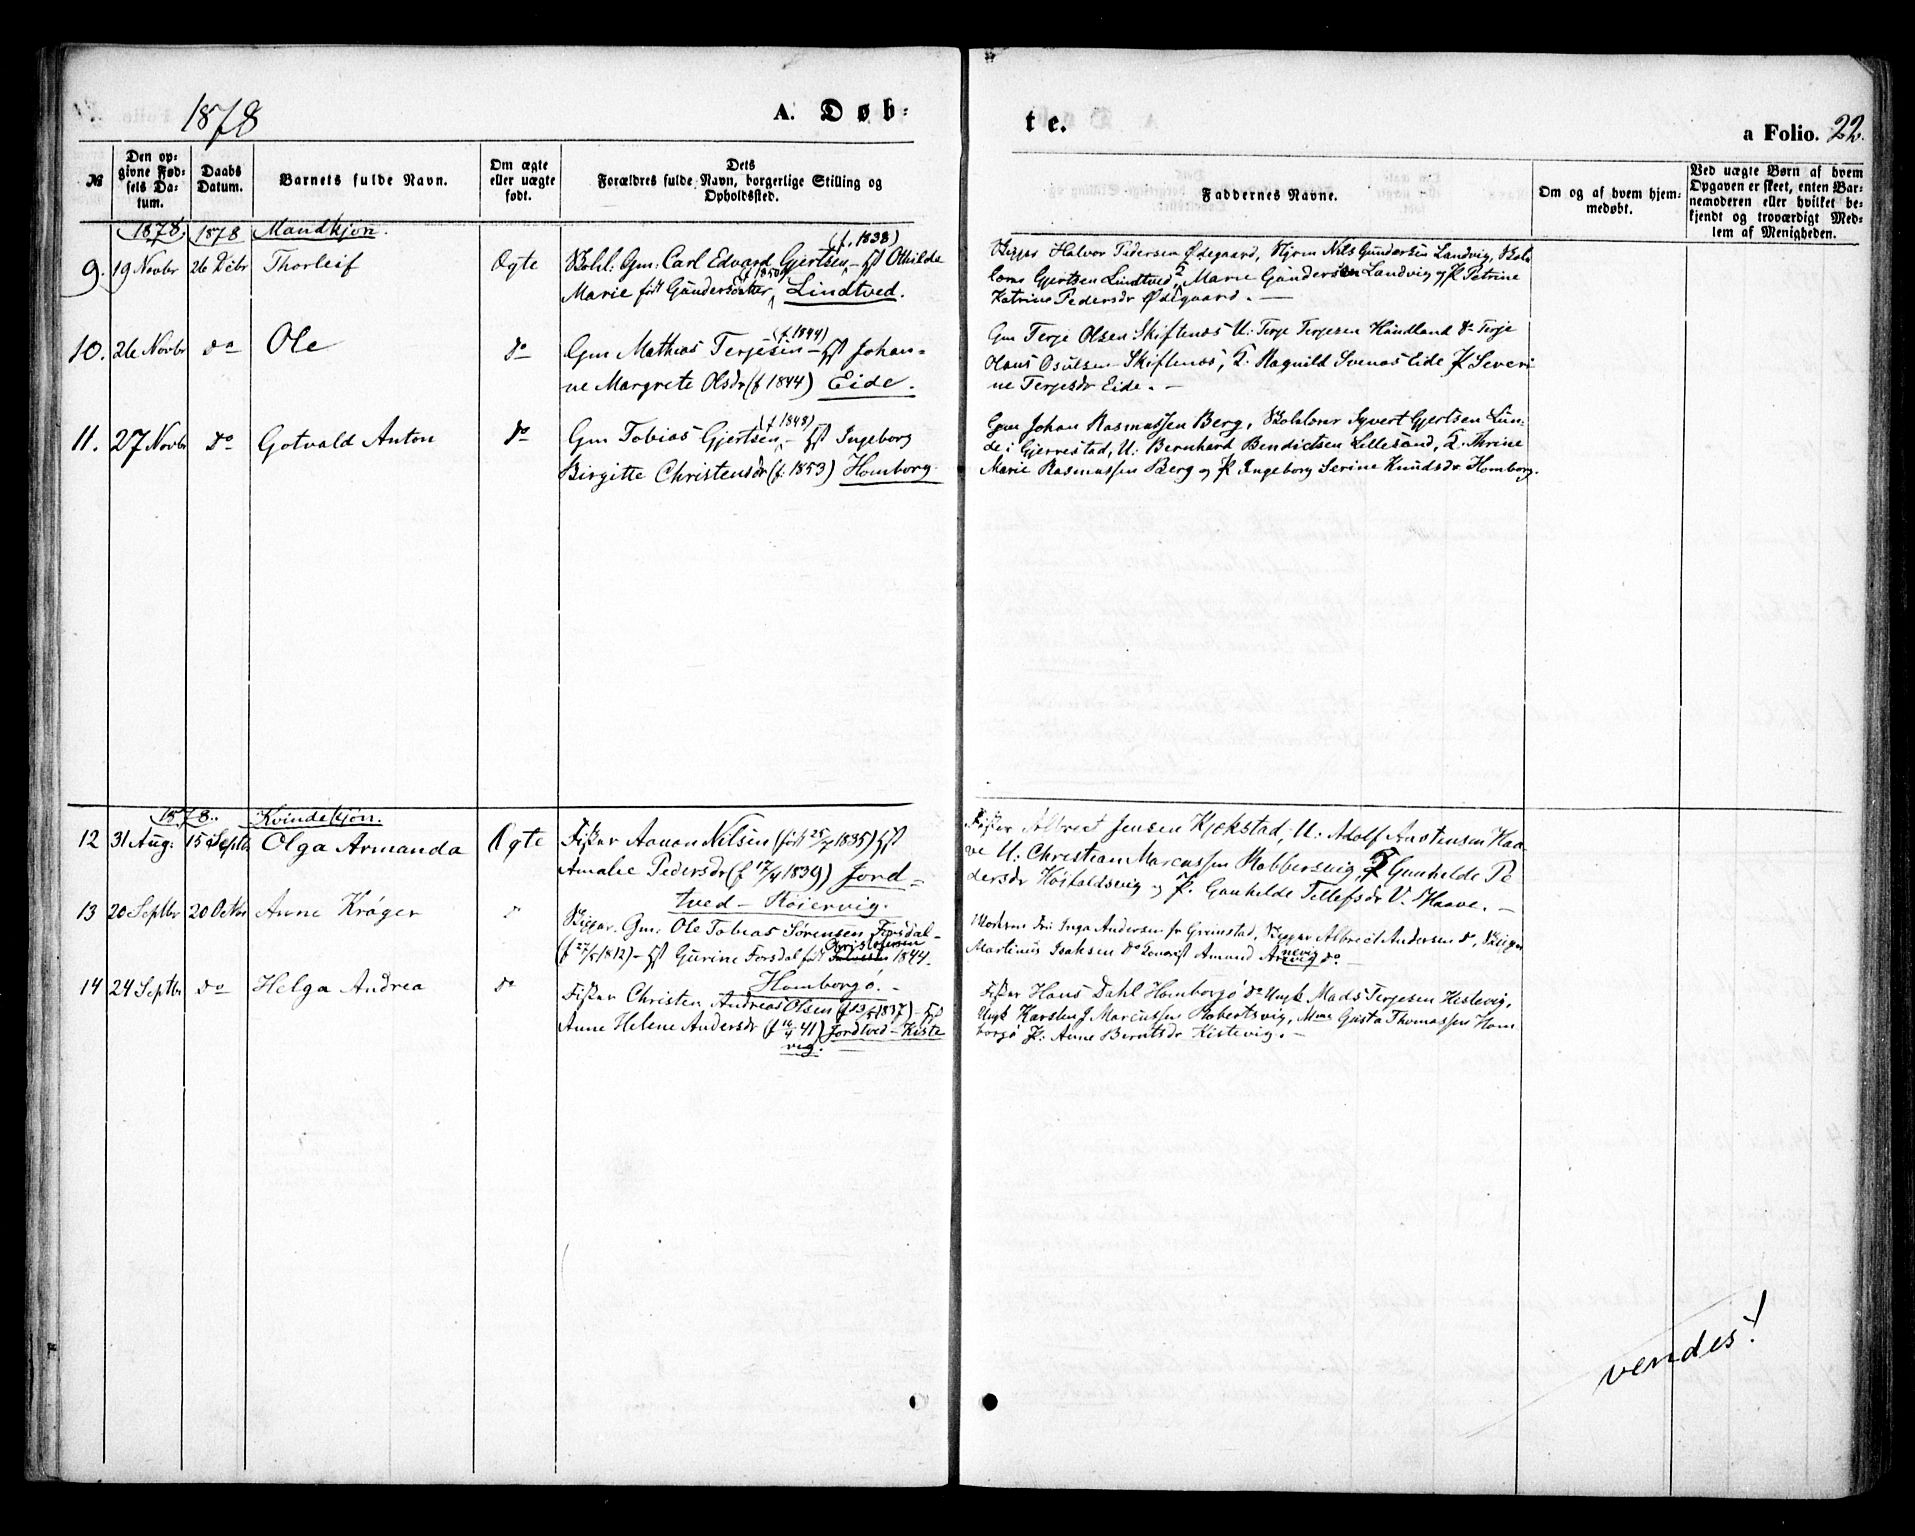 1878
A. Døb-
te.
a Folio. 22.
№
Den op-
givne Fød-
sels Da-
tum.
Daabs
Datum.
Barnets fulde Navn.
Om ægte
eller uægte
født.
Dets
Forældres fulde Navn, borgerlige Stilling og
Opholdssted.
Faddernes Navne.
Om og af hvem hjem-
medøbt.
Ved uægte Børn af hvem
Opgaven er skeet, enten Bar-
nemoderen eller hvilket be-
kjendt og troværdigt Med-
lem af Menigheden.
1878. 1878 Mandkjøn.
9. 19 Novbr 26 Debr Thorleif Ægte
(f. 1838)
Skoll: Gm: Carl Edvard Gjertsen - Hst Othilde
(f 1850)
Marie født Gundersdatter, Lindtved.
Skipper Halvor Pedersen Ødegaard, Nils Gundersen Landvig, Skole
lærer Gjertsen Lindtved, Marie Gundersen Landvig og P. Petrine
Katrine Pedersdr Ødegaard. -
10. 26 Novbr do Ole do
(f 1844)
Gm Mathias Terjesen - Hst Johan-
ne Margrete Olsdr (f 1844) Eide.
Gm Terje Olsen Skiftenes U: Terje Terjesen Haudland do Terje
Hans Osulsen Skiftenes, K. Ragnild Svenas Eide P. Severi
ne Terjesdr Eide. -
11. 27 Novbr do Gotvald Anton do
(f 1848)
Gm Tobias Gjertsen, - Hst Ingeborg
Birgitte Christensdr (f. 1853) Homborg.
Gm Johan Rasmussen Berg, Skolelærer Syvert Gjertsen Lun-
de i Gjerrestad, U: Bernhard Bendictsen Lillesand, K. Thrine
Marie Rasmussen Berg og P. Ingeborg Serine Knudsdr Homborg.
1878. Kvindekjøn.
12 31 Aug: 15 Septbr Olga Armanda Ægte
Fisker Aanon Nilsen (født 25/7 1835) Hst
Amalie Pedersdr (f 17/4 1839) Jord-
tved - Røiervig.
Fisker Albrect Jensen Kjøkstad, U: Adolf Anstensen Haa-
ve U: Christian Marcussen Robbersvig, P Gunhilde Pe
dersdr Høsfaldsvig og P: Gunhilde Tellefsdr V. Haave. -
13 20 Septbr 20 Octbr Anne Krøger
Skipper. Gm: Ole Tobias Sørensen Forsdal -
(f 27/5 1812) - Hst Gurine Forsdal født Christofersen 1844.
Homborgø. -
Madam Inga Andersen fr Grimstad, Skipper Albrect Andersen do, Skipper
Martinus Isaksen do Amund Arnevig do
14 24 Septbr do Helga Andrea do
Fisker Christen Andreas Olsen (f 13/5 1837) - Hst
Anne Helene Andersdr (f 16/4 41) Jordtved - Kiste
vig.
Fisker Hans Dahl Homborgø do Ungk Mads Terjesen Kistevig,
Ungk Karsten J. Marcussen Robertsvig, Mme Gusta Thomassen Hom
borgø P: Anne Berntsdr Kistevig. -
vendes!